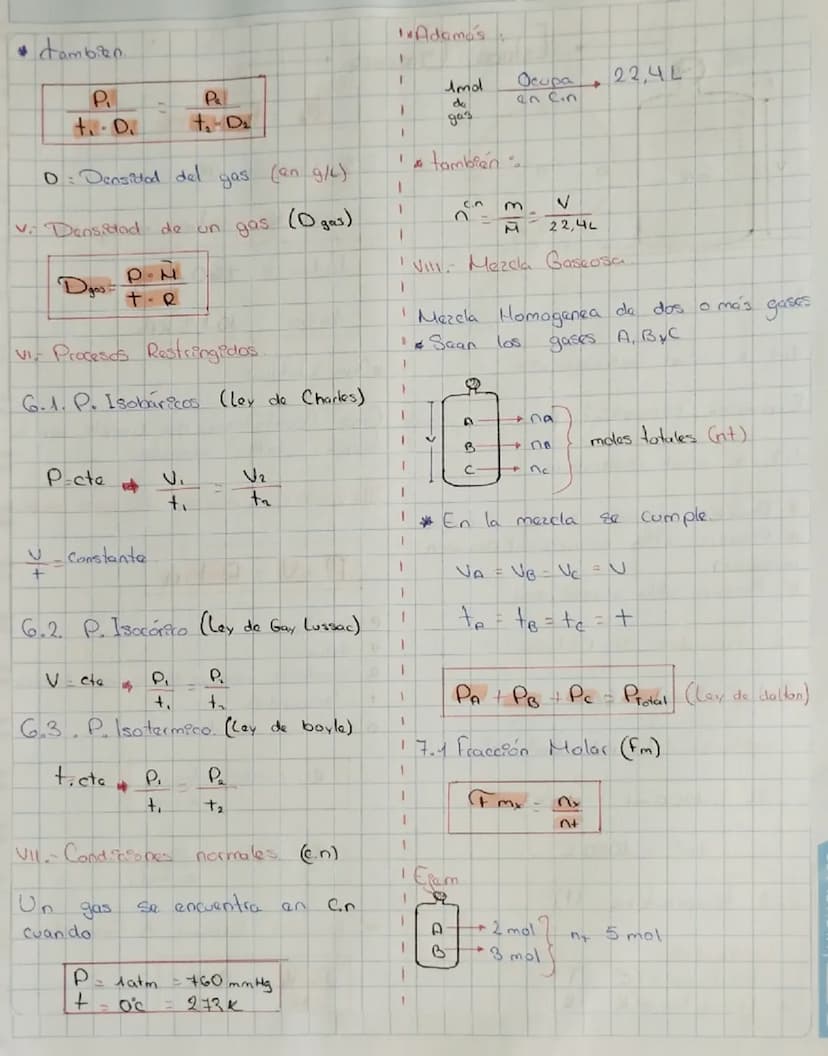 * tambien.
P₁ / t₁ · D₁ = P₂ / t₂ - D₂
D : Densidad del gas (en g/L)
V.- Densidad de un gas (D gas)
D gas = P · M̄ / t · R
VI.- Procesos Restringidos
6.1. P. Isobáricos (Ley de Charles)
P=cte → V₁ / t₁ = V₂ / t₂
V / t = Constante
6.2 P. Isocórico (Ley de Gay Lussac)
V = cte → P₁ / t₁ = P₂ / t₂
6.3. P. Isotermico. (Ley de boyle)
t. cte → P₁ / t₁ = P₂ / t₂
VII.- Condiciones normales (c.n)
Un gas se encuentra en C.n
cuando
P = 1atm = 760 mmHg
t = 0°c = 273K
* Además :
1mol de gas Ocupa en C.n → 22,4 L
* también :
n c.n = m / M̄ = V / 22,4L
VIII.- Mezcla Gaseosa
Mezcla Homogenea de dos o más gases
* Sean los gases A, B y C
V
A → na
B → nB
C → nc
moles totales (nt)
* En la mezcla se cumple.
VA = VB = VC = V
tA = tB = tC = t
PA + PB + PC = PTotal (Ley de dalton)
7.1 Fracción Molar (Fm)
Fmx = nx / nt
Ejem
A → 2 mol
B → 3 mol
nt 5 mol